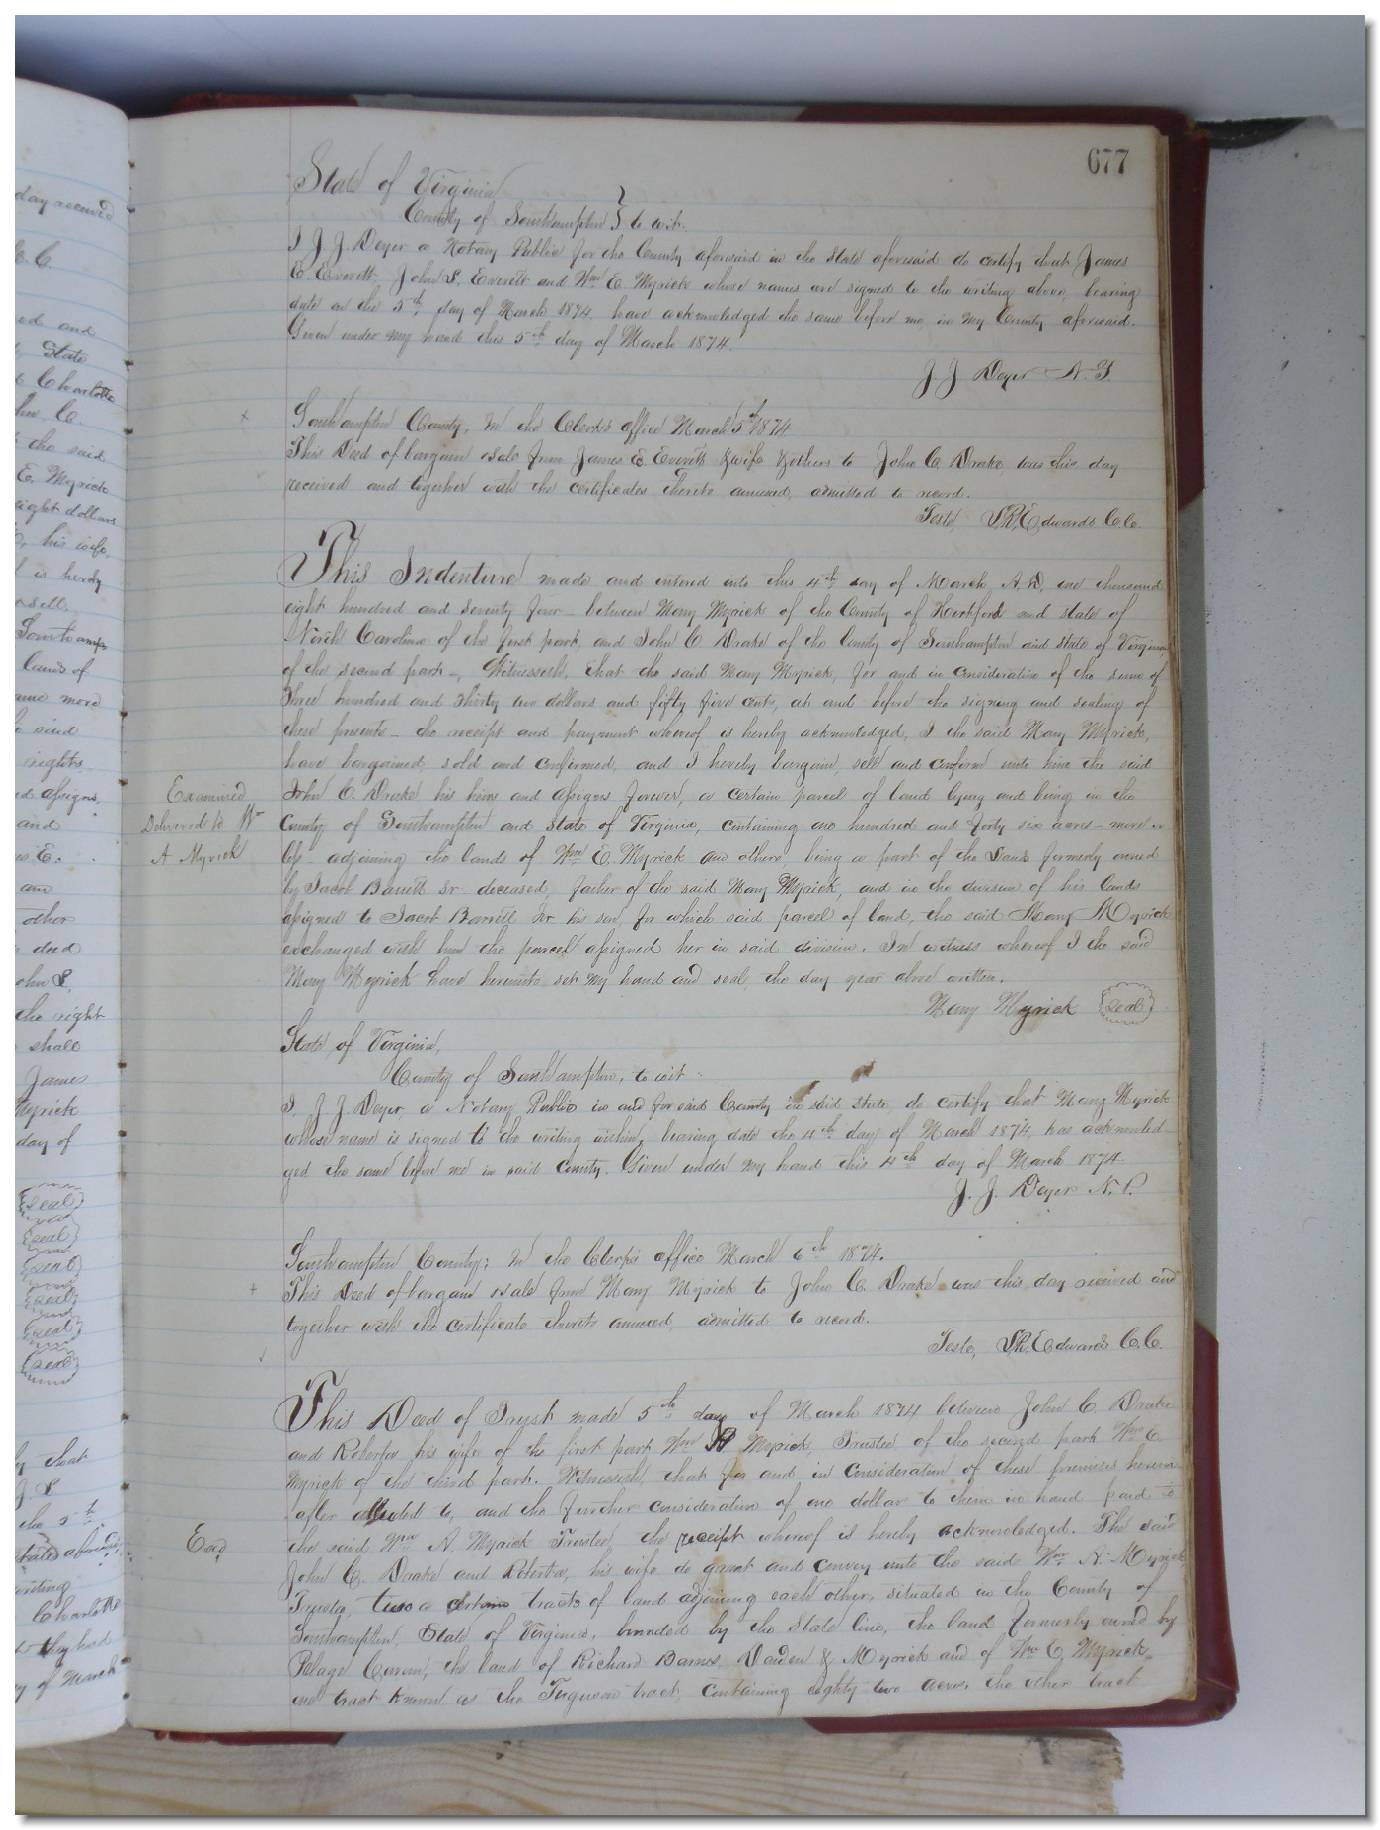 677
State of Virginia
County of Southampton } to wit.
I J. J. Deyer a Notary Public for the County aforesaid in the State aforesaid do certify that James
E. Everett John S. Everett and Wm E. Myrick whose names are signed to the writing above, bearing
date on the 5th day of March 1874 have acknowledged the same before me in my County aforesaid.
Given under my hand this 5th day of March 1874.
J J Deyer N. P.
Southampton County; In the Clerks office March 5th 1874
This Deed of bargain & sale from James E Everett & wife & others to John C Drake was this day
received and together with the certificates thereto annexed, admitted to record.
Teste, S.R. Edwards C.C.
This Indenture made and entered into this 4th day of March A.D. one thousand
eight hundred and seventy four – between Mary Myrick of the County of Hertford and State of
North Carolina of the first part, and John C. Drake of the County of Southampton and State of Virginia
of the second part –, Witnesseth, that the said Mary Myrick, for and in consideration of the sum of
Three hundred and thirty two dollars and fifty five cents, at and before the signing and sealing of
these presents – the receipt and payment whereof is hereby acknowledged, I the said Mary Myrick,
have bargained, sold and confirmed, and I hereby bargain, sell and confirm unto him the said
John C. Drake his heirs and assigns forever, a certain parcel of land lying and being in the
County of Southampton and State of Virginia, containing one hundred and forty six acres – more or
less – adjoining the lands of Wm E. Myrick and others, being a part of the land formerly owned
by Jacob Barrett Sr deceased, father of the said Mary Myrick, and in the division of his lands
assigned to Jacob Barrett Jr his son, for which said parcel of land, the said Mary Myrick
exchanged with him the parcel assigned her in said division. In witness whereof I the said
Mary Myrick have hereunto set my hand and seal, the day year above written.
Mary Myrick seal
Examined
Delivered to Wm
A Myrick
State of Virginia,
County of Southampton, to wit:
I, J J Deyer, a Notary Public in and for said County in said State, do certify that Mary Myrick
whose name is signed to the writing within, bearing date the 4th day of March 1874, has acknowled
ged the same before me in said County. Given under my hand this 4th day of March 1874.
J. J. Deyer N. P.
Southampton County; In the Clerks office March 6th 1874.
This Deed of bargain & sale from Mary Myrick to John C. Drake was this day received and
together with the certificate thereto annexed, admitted to record.
Teste, S.R. Edwards C.C.
This Deed of Trust made 5th day of March 1874 between John C. Drake
and Roberta his wife of the first part Wm A Myrick, Trustee of the second part Wm E.
Myrick of the third part. Witnesseth, that for and in consideration of these premises herein
after alluded to, and the further consideration of one dollar to them in hand paid
the said Wm A. Myrick Trustee, the receipt whereof is hereby acknowledged. The said
John C. Drake and Roberta, his wife do grant and convey unto the said Wm A. Myrick
Trustee, two a certain tracts of land adjoining each other, situated in the County of
Southampton, State of Virginia, bounded by the State line, the land formerly owned by
the land of Richard Barnes, Darden & Myrick and of Wm E. Myrick,
one tract known as the Ferguson tract, containing eighty two acres, the other tract
Exd